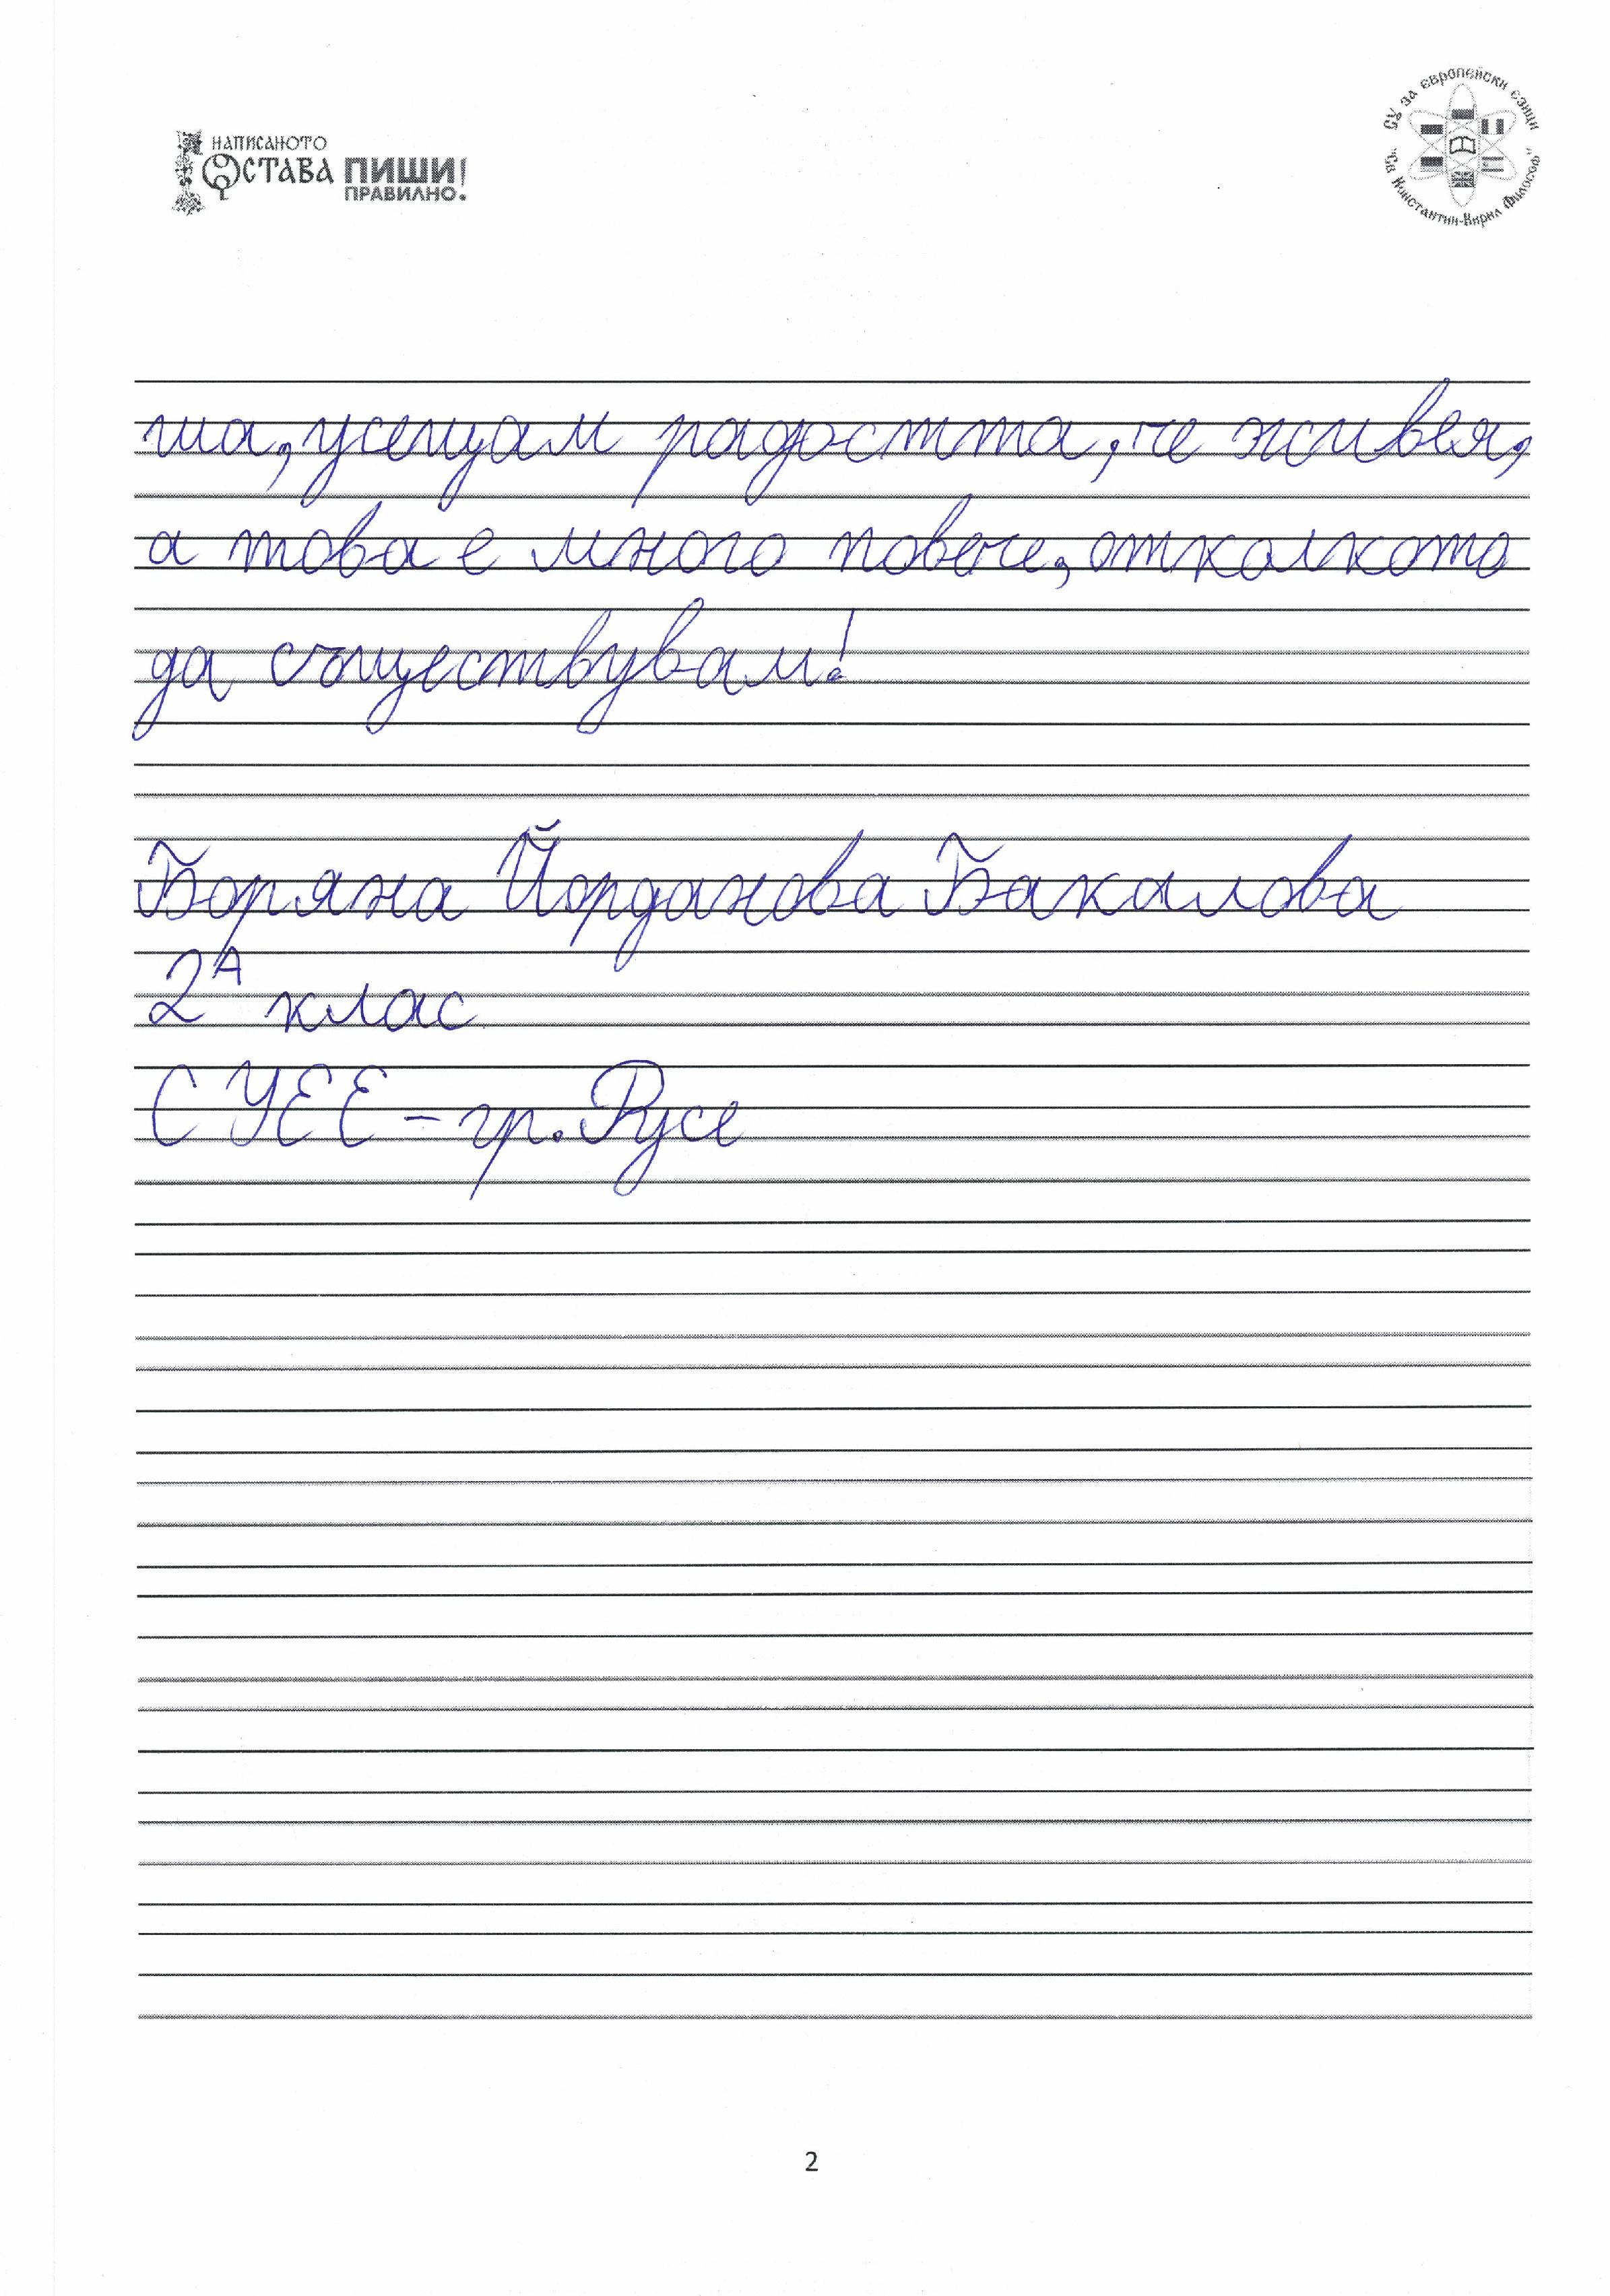 НАПИСАНОТО
ОСТАВА ПИШИ
ПРАВИЛНО!
СУ за европейски езици
"Св. Константин-Кирил Философ"
ша, усещам радостта, че живея,
а това е много повече, отколкото
да съществувам!
Боряна Йорданова Бакалова
2А клас
СУЕЕ – гр. Русе
2